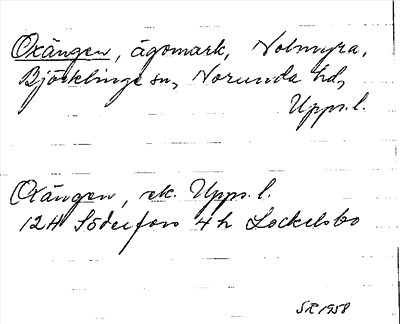 Oxängen, ägomark, Nolmyra,
Björklinge sn, Norunda hd,
Upps. l.
Oxängen, ek. Upps. l.
12H Söderfors 4h Lockelsbo
SR 1958